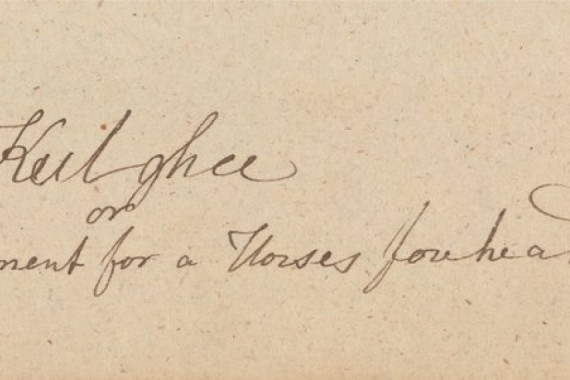 Keelghee
or
ment for a Horses forehea